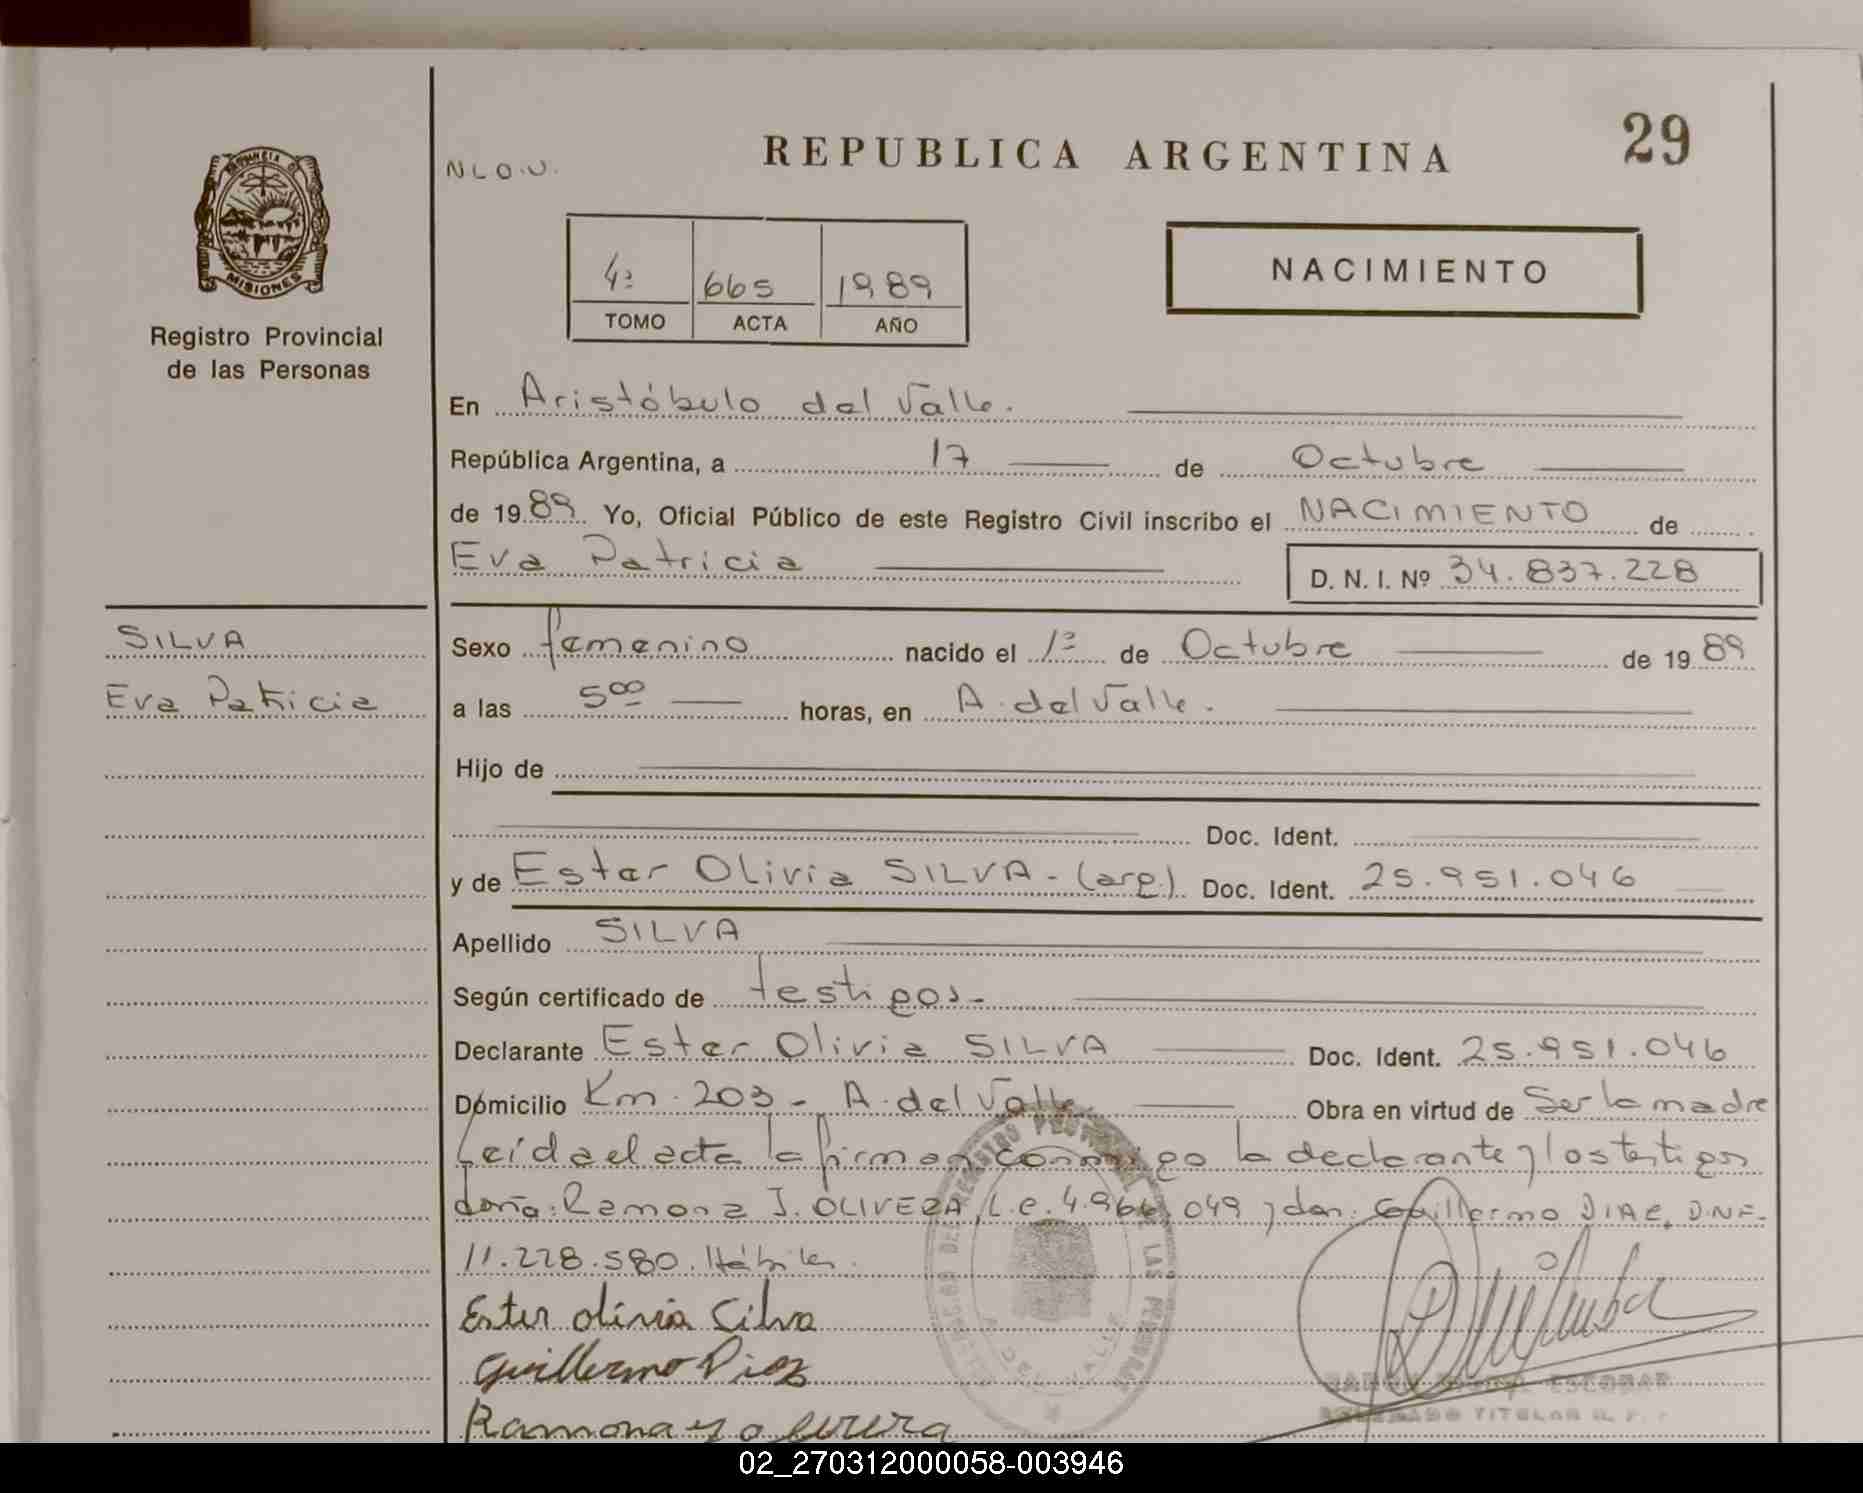 REPUBLICA ARGENTINA
29
N L O.U.
PROVINCIA D MISIONES
Registro Provincial
de las Personas
4º 665 1989
TOMO ACTA AÑO
NACIMIENTO
En Aristóbulo del Valle.
República Argentina, a 17 de Octubre
de 1989 Yo, Oficial Público de este Registro Civil inscribo el NACIMIENTO de
Eva Patricia D. N. I. Nº 34.837.228
SILVA
Eva Patricia
Sexo femenino nacido el 1º de Octubre de 1989
a las 5⁰⁰ horas, en A. del Valle.
Hijo de
Doc. Ident.
y de Ester Olivia SILVA - (arg.) Doc. Ident. 25.951.046
Apellido SILVA
Según certificado de testigos.-
Declarante Ester Olivia SILVA Doc. Ident. 25.951.046
Domicilio Km. 203 - A. del Valle Obra en virtud de Ser la madre
Leída el acta la firman conmigo la declarante y los testigos
doña: Ramona J. OLIVERA, L.C. 4.966.049 y don: Guillermo DIAZ, DNI.
11.228.580. Hábiles.
Ester olivia Silva
Guillermo Diaz
Ramona
ESCOBAR
TITULAR R. P.
A. DEL VALLE
02_270312000058-003946